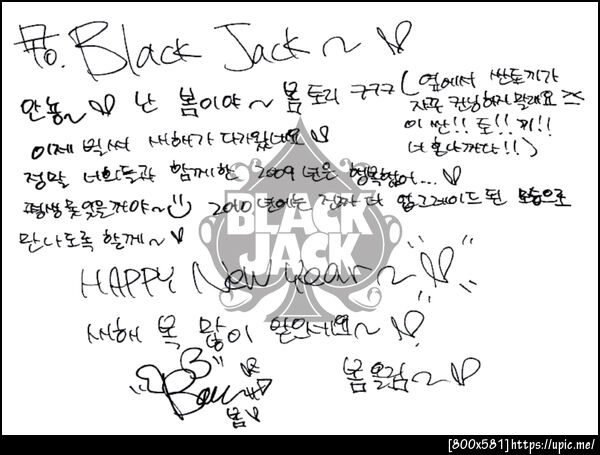 To. Black Jack~♡
안뇽~♡ 난 봄이야~ 봄토리 ㅋㅋㅋ
(옆에서 싼토끼가
자꾸 컨닝하지 말래요
이 싼!! 토!! 끼!!
너 혼나까다!!)
이제 벌써 새해가 다가왔네요♡
정말 너희들과 함께한 2009년은 행복했어...♡
평생 못잊을꺼야~ 2010년에는 진짜 더 업그레이드 된 모습으로
만나도록 할게~♡
BLACK
JACK
HAPPY New Year~♡
새해 복 많이 받으세요~♡
Bom
봄♡
봄올림~♡
[800x581]https://upic.me/